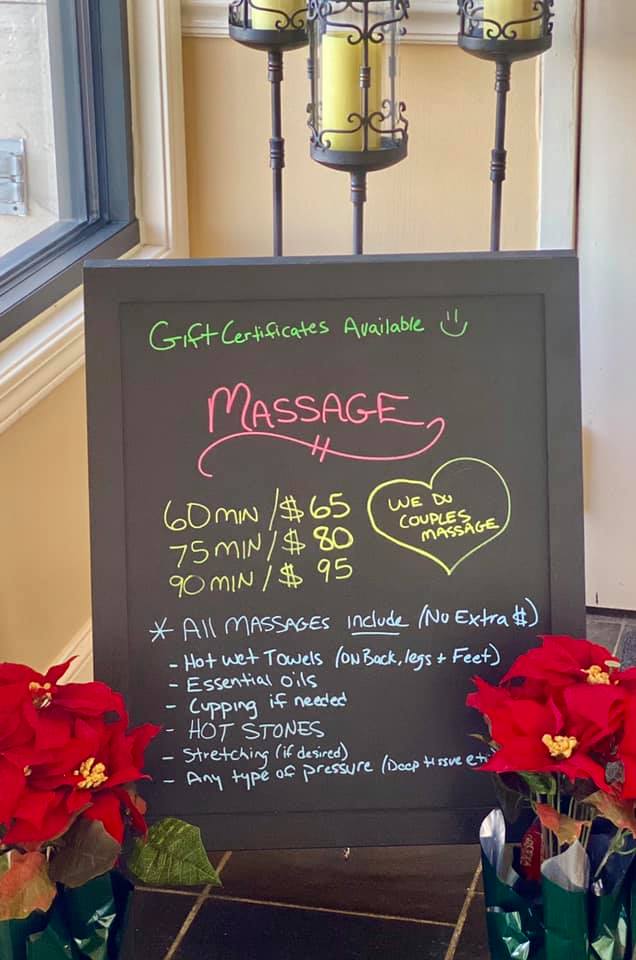 Gift Certificates Available
MASSAGE
60 MIN / $ 65
75 MIN / $ 80
90 MIN / $ 95
WE DO
COUPLES
MASSAGE
* All MASSAGES include (No Extra $)
- Hot wet Towels (on Back, legs + Feet)
- Essential oils
- Cupping if needed
- HOT STONES
- Stretching (if desired)
- Any type of pressure (Deep tissue